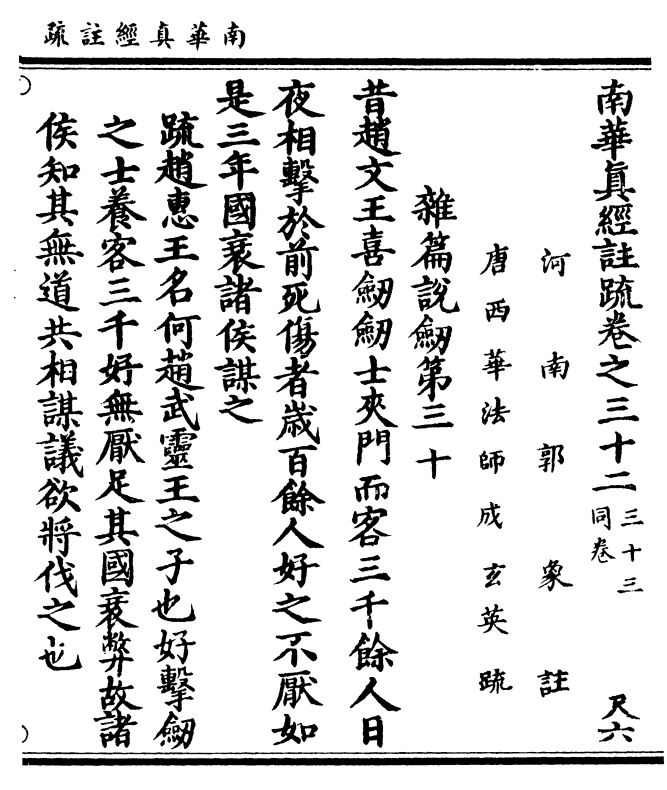 南華真經註疏
南華眞經註疏卷之三十二 三十三同卷 尺六
河南郭象註
唐西華法師成玄英疏
雜篇說劒第三十
昔趙文王喜劒劒士夾門而客三千餘人日
夜相擊於前死傷者歲百餘人好之不厭如
是三年國衰諸侯謀之
疏趙惠王名何趙武靈王之子也好擊劒
之士養客三千好無厭足其國衰弊故諸
侯知其無道共相謀議欲將伐之也